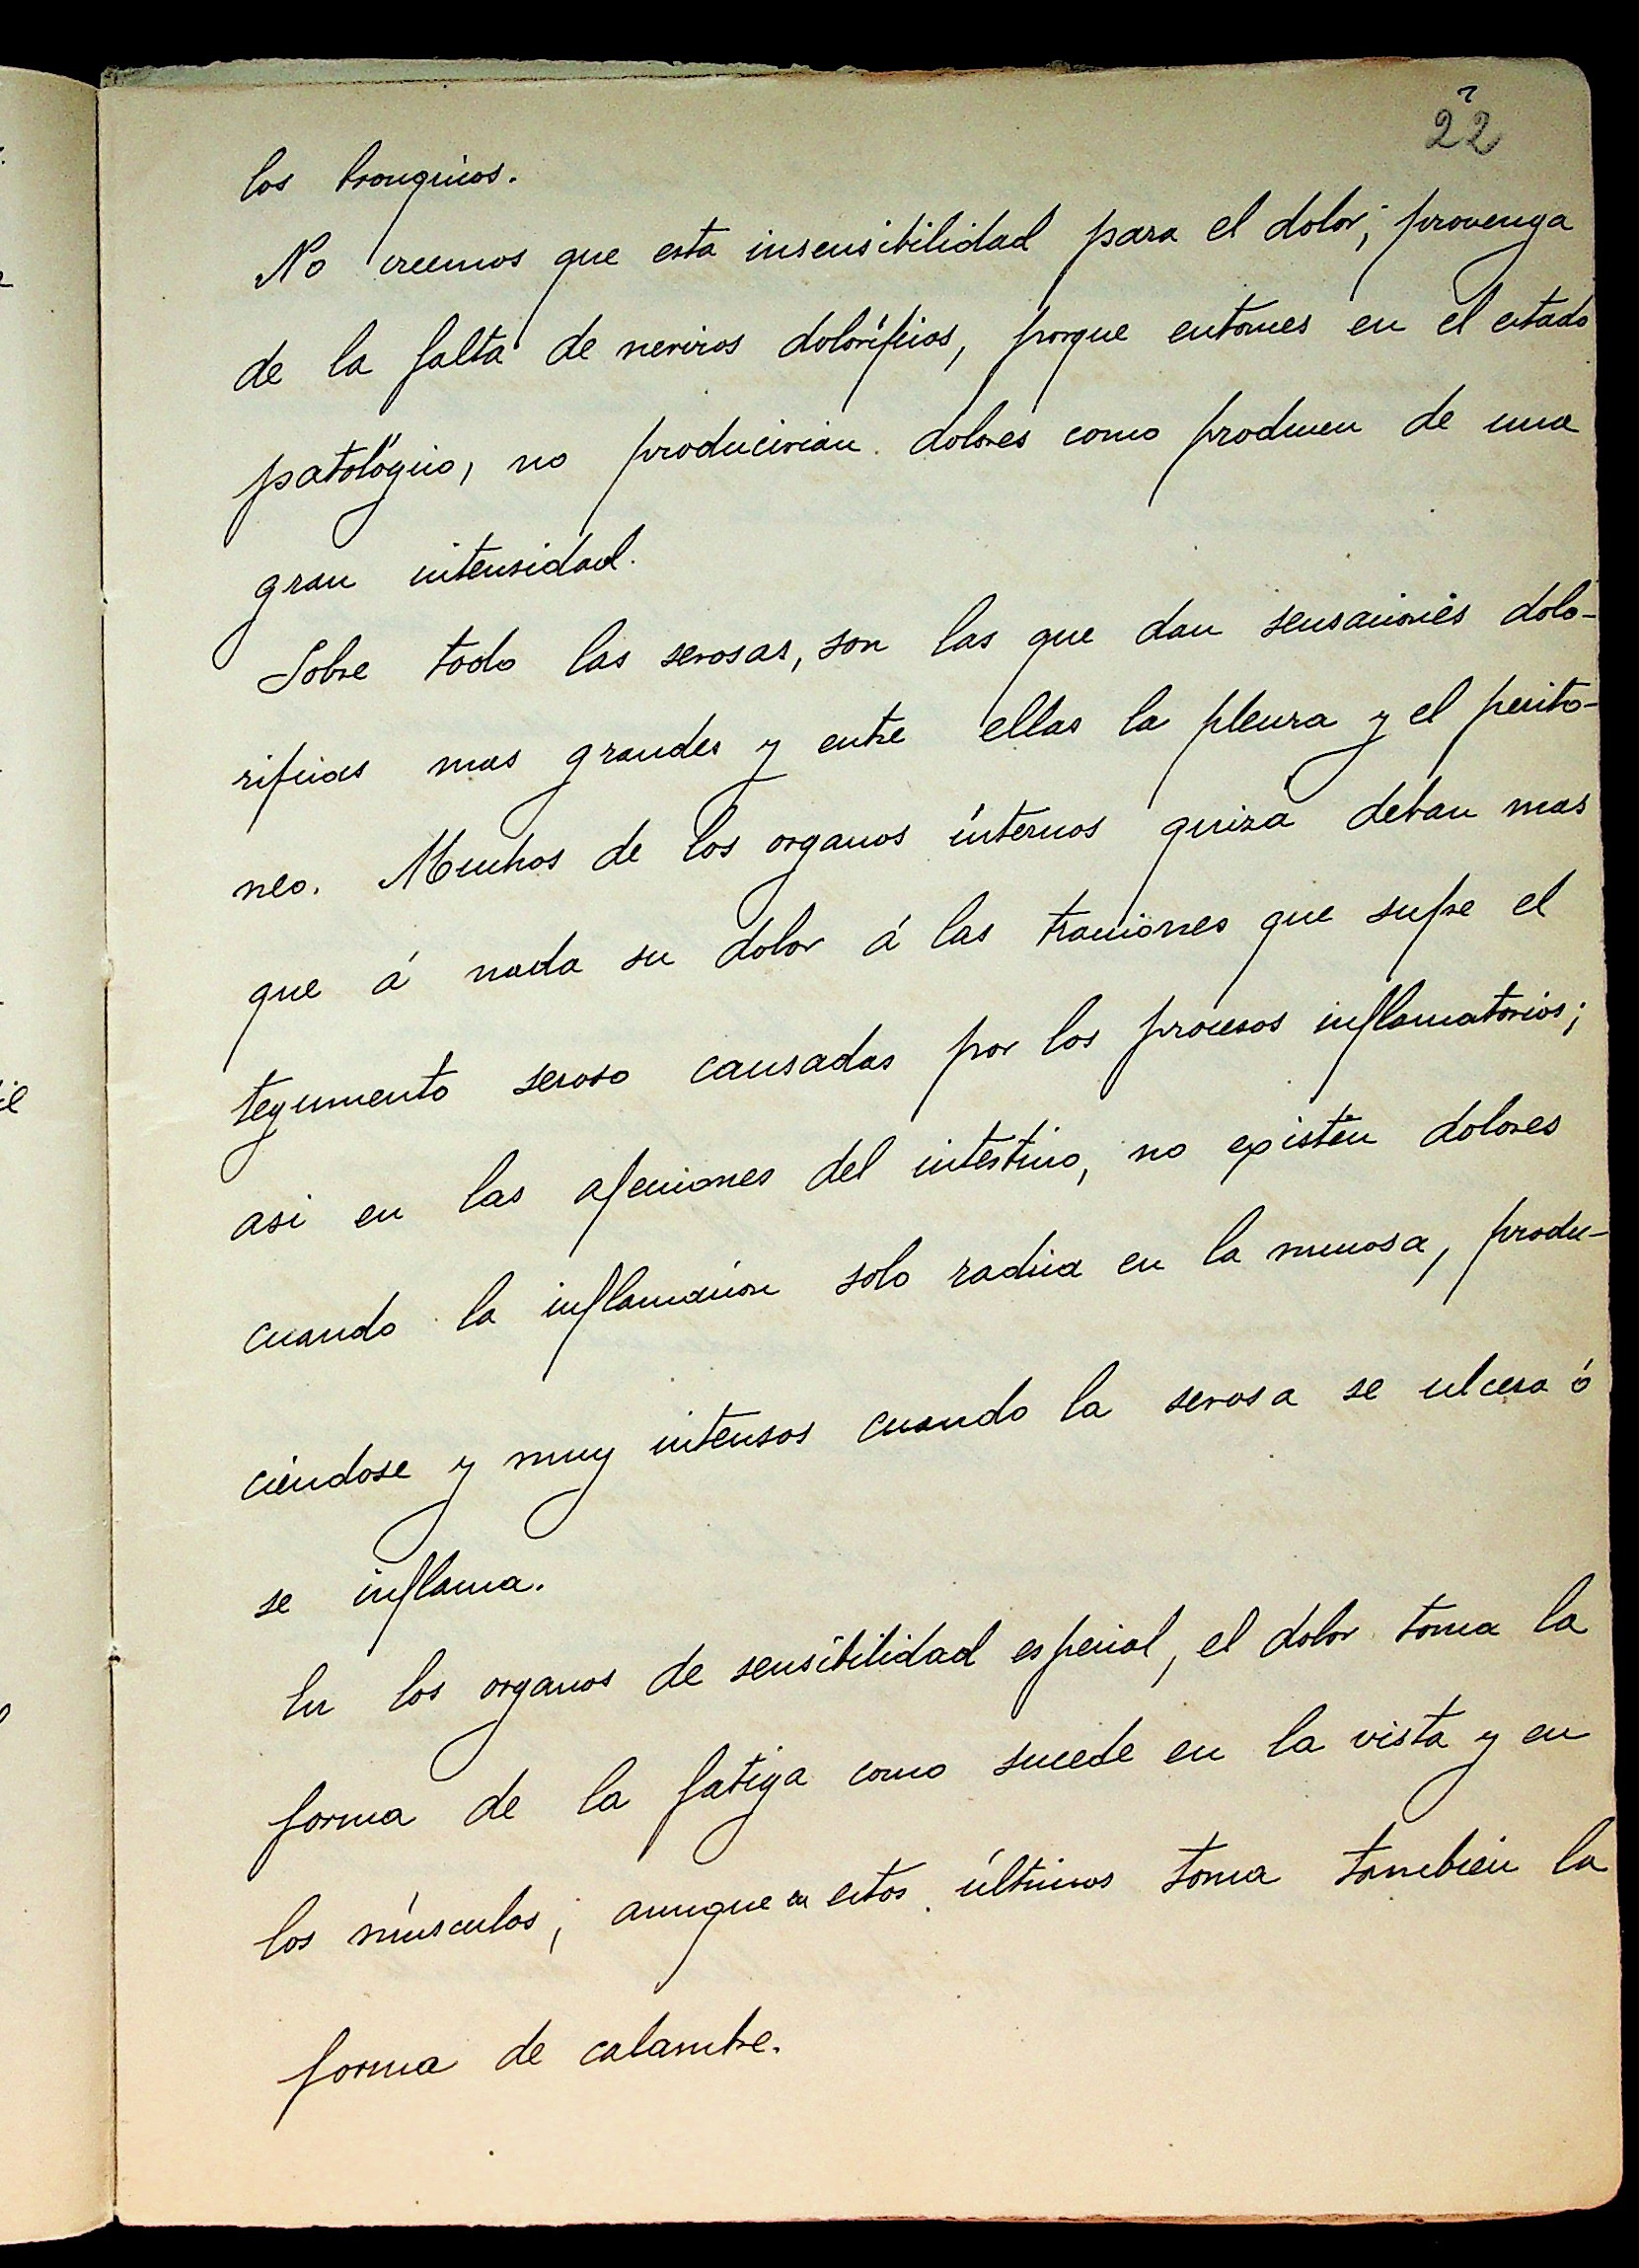 22
los bronquios.
No creemos que esta insensibilidad para el dolor, provenga
de la falta de nervios dolorificos, porque entonces en el estado
patológico, no producirian dolores como producen de una
gran intensidad.
Sobre todo las serosas, son las que dan sensaciones dolo-
rificas mas grandes y entre ellas la pleura y el perito-
neo. Muchos de los organos internos quizá deban mas
que á nada su dolor á las tracciones que sufre el
tegumento seroso causadas por los procesos inflamatorios;
asi en las afecciones del intestino, no existen dolores
cuando la inflamación solo radica en la mucosa, produ-
ciéndose y muy intensos cuando la serosa se ulcera ó
se inflama.
En los organos de sensibilidad especial, el dolor toma la
forma de la fatiga como sucede en la vista y en
los músculos, aunque en estos últimos toma tambien la
forma de calambre.